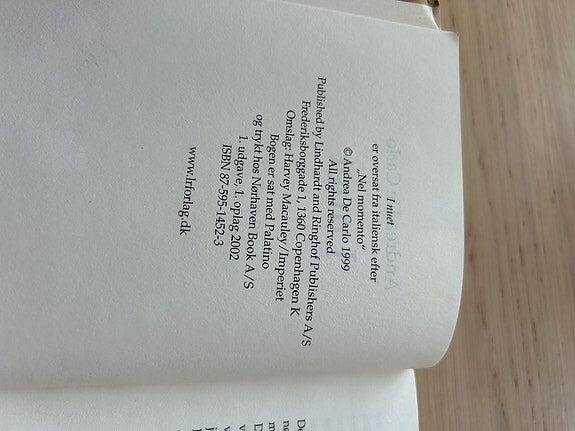 I nuet
er oversat fra italiensk efter
„Nel momento“
© Andrea De Carlo 1999
All rights reserved
Published by Lindhardt and Ringhof Publishers A/S
Frederiksborggade 1, 1360 Copenhagen K
Omslag: Harvey Macauley/Imperiet
Bogen er sat med Palatino
og trykt hos Nørhaven Book A/S
1. udgave, 1. oplag 2002
ISBN 87-595-1452-3
www.lrforlag.dk